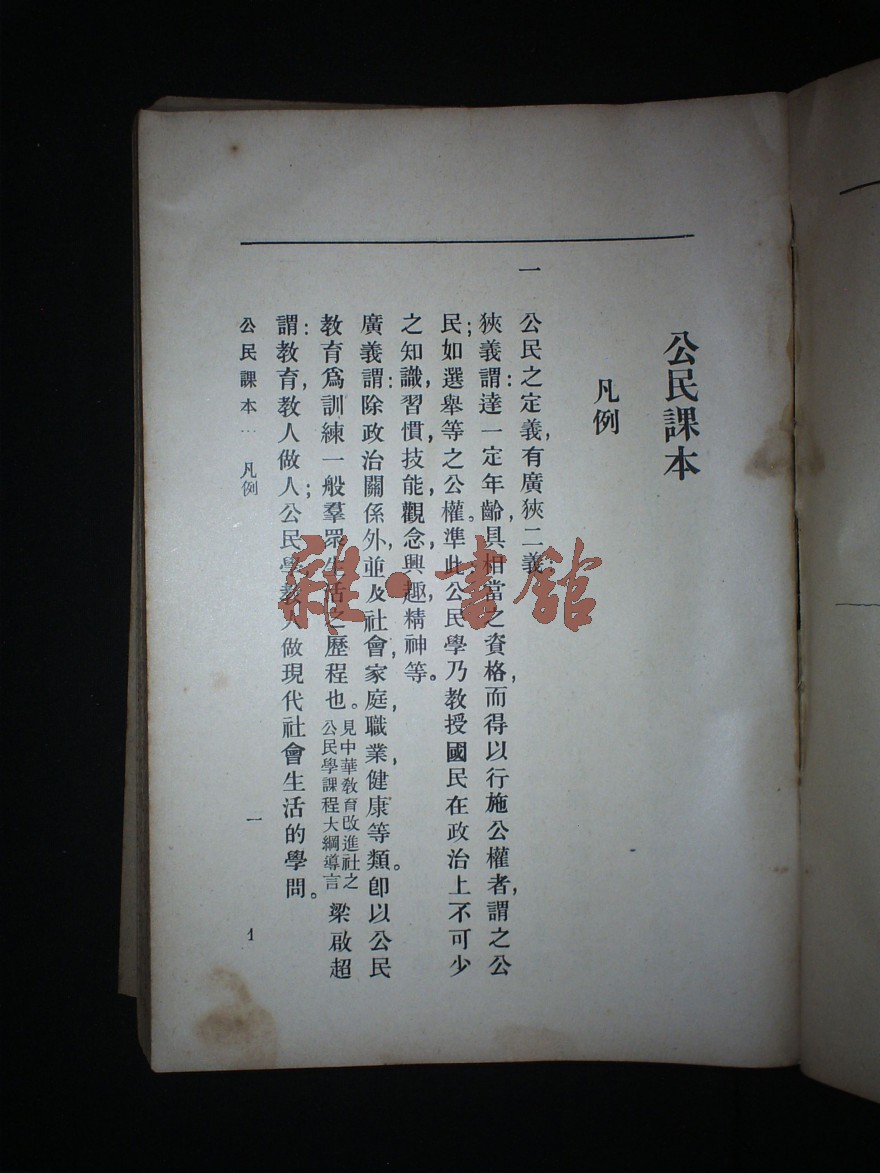 公民課本
凡例
一 公民之定義,有廣狹二義,
狹義謂:達一定年齡,具相當之資格,而得以行施公權者,謂之公
民;如選舉等之公權。準此,公民學乃教授國民在政治上不可少
之知識,習慣,技能,觀念,興趣,精神等。
廣義謂:除政治關係外,並及社會,家庭,職業,健康等類。卽以公民
教育爲訓練一般羣眾生活之歷程也。見中華教育改進社之公民學課程大綱導言 梁啟超
謂:教育,教人做人;公民學,教人做現代社會生活的學問。
公民課本:凡例 一 1
雜·書館